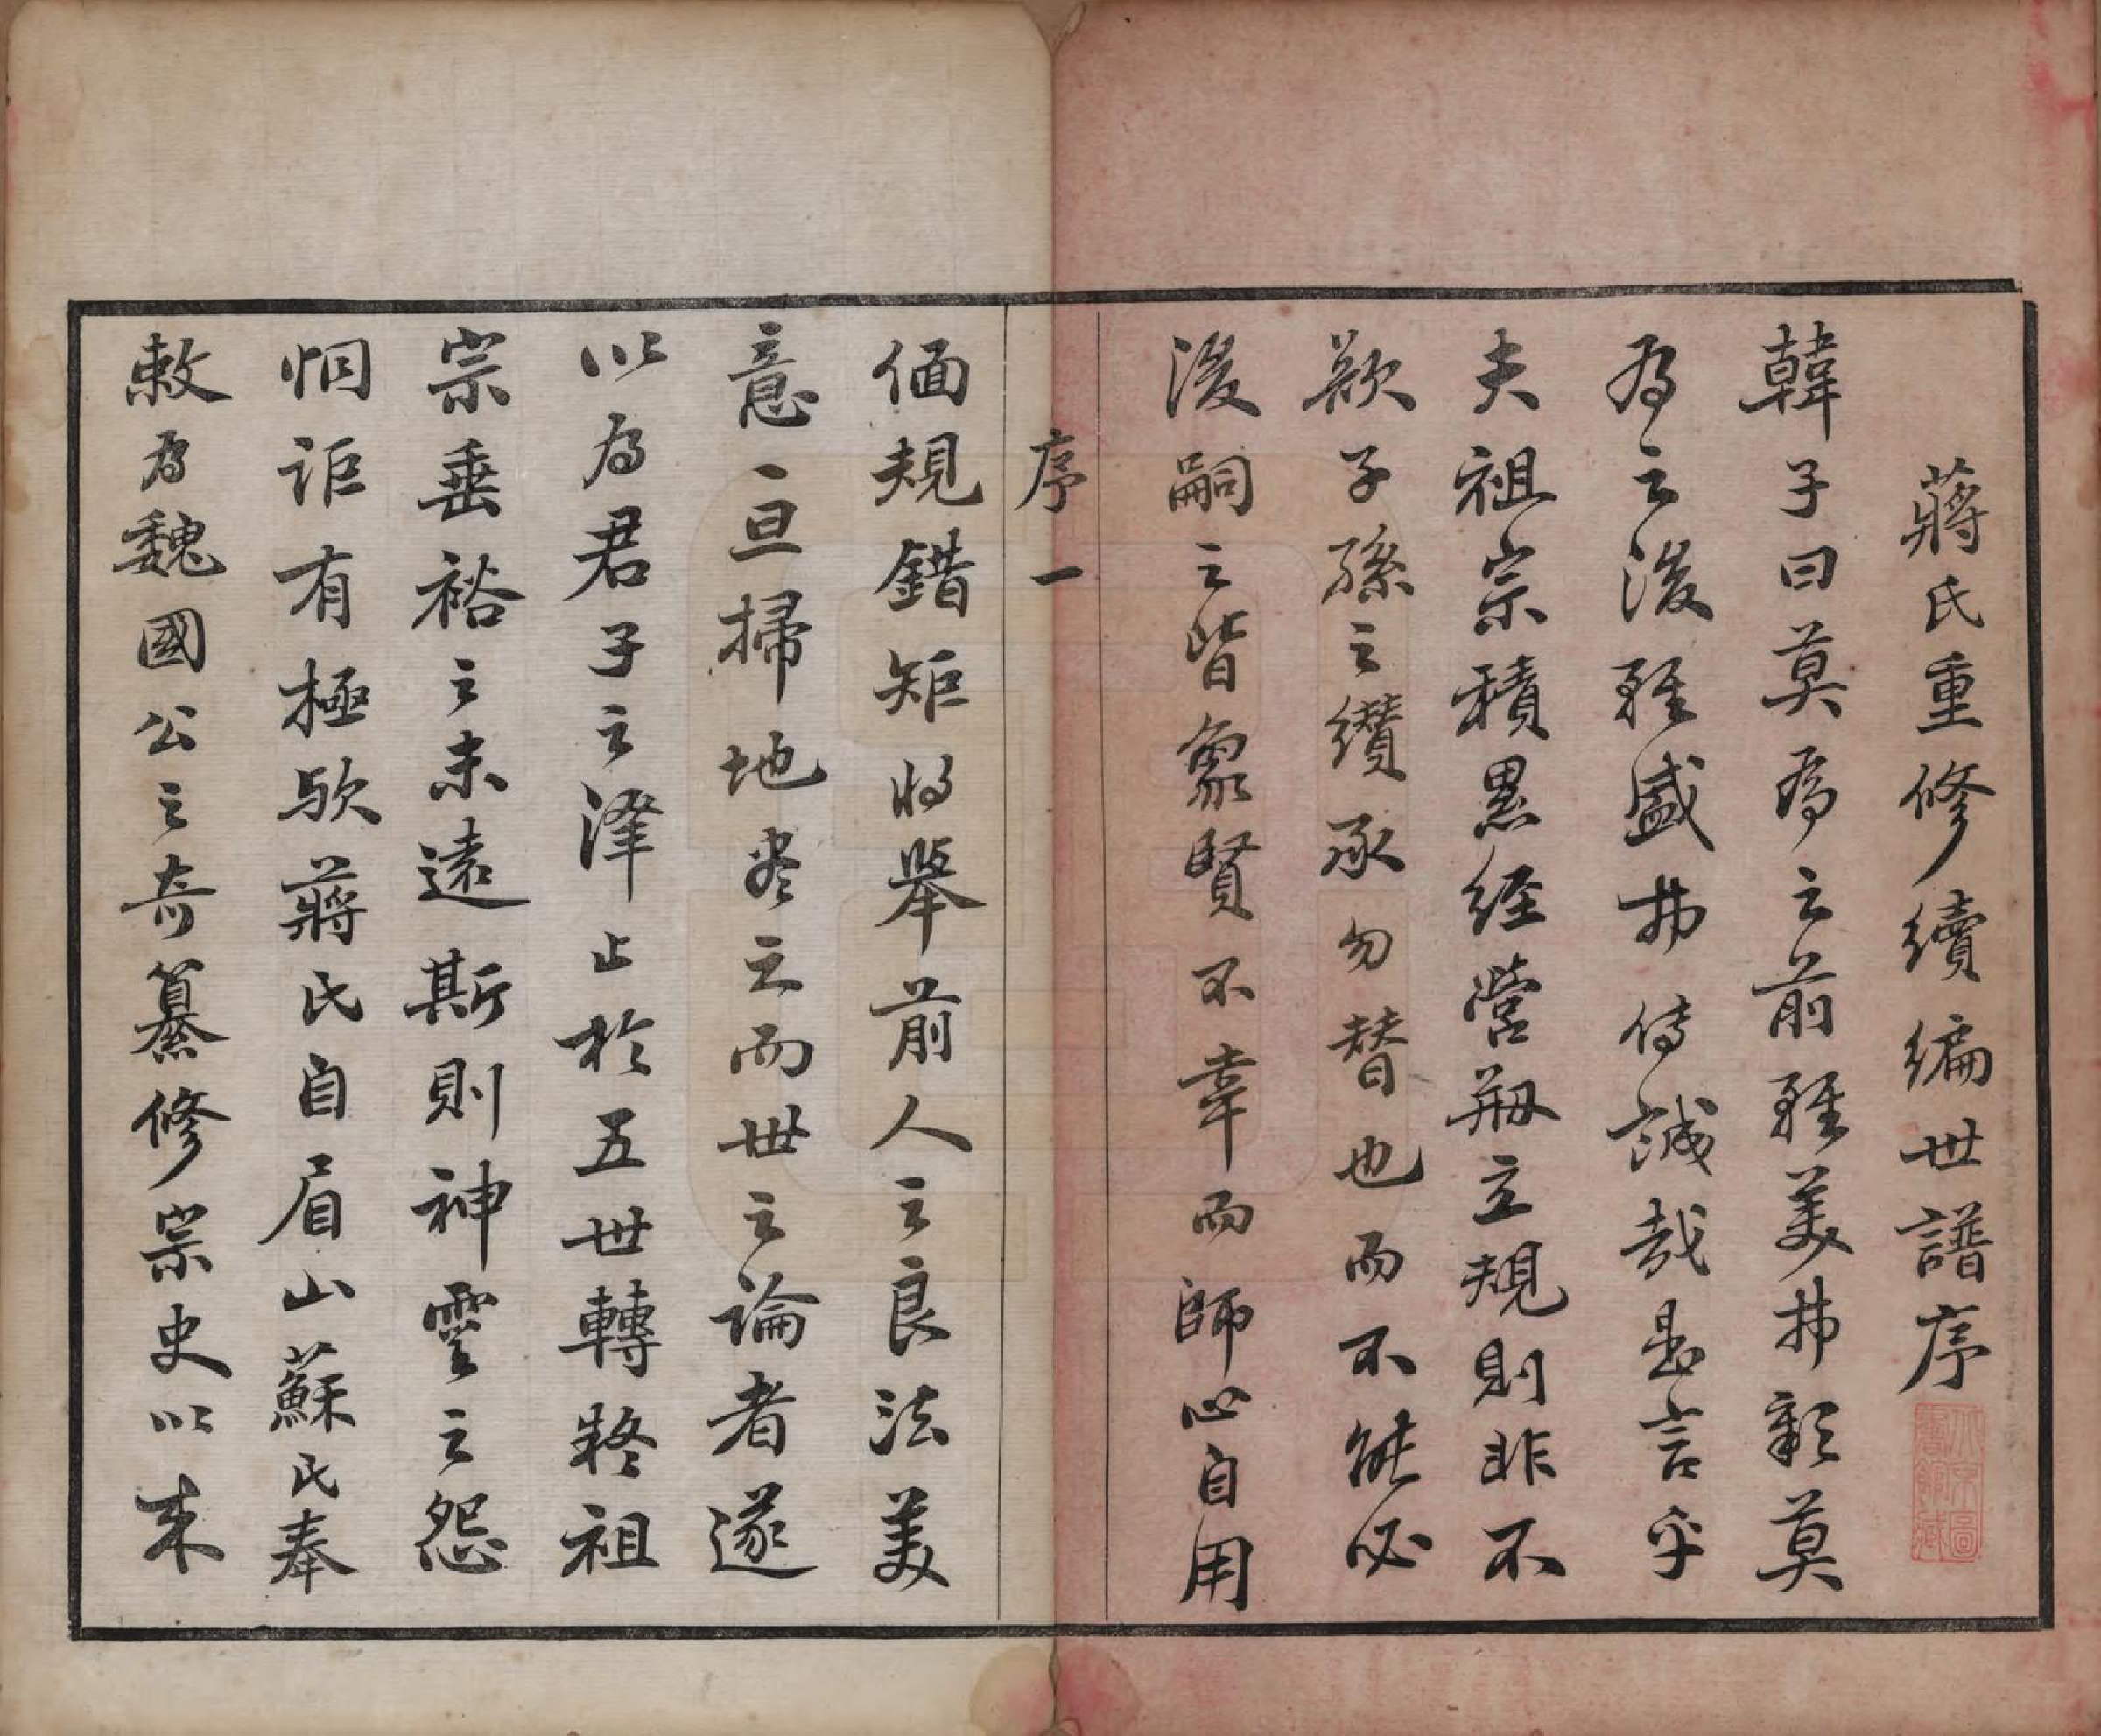 蔣氏重修續編世譜序
韓子曰莫為之前雖美弗彰莫
為之後雖盛弗傳誠哉是言乎
夫祖宗積累經營剏立規則非不
欲子孫之纘承勿替也而不能必
後嗣之皆象賢不幸而師心自用
序一
偭規錯矩將舉前人之良法美
意一旦掃地尽之而世之論者遂
以為君子之澤止於五世轉終祖
宗垂裕之未遠斯則神靈之怨
恫詎有極歟蔣氏自眉山蘇氏奉
敕為魏國公之奇纂修宗史以来